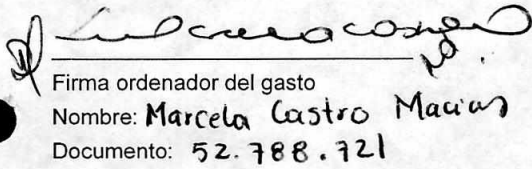 Firma ordenador del gasto
Nombre: Marcela Castro Macias
Documento: 52.788.721